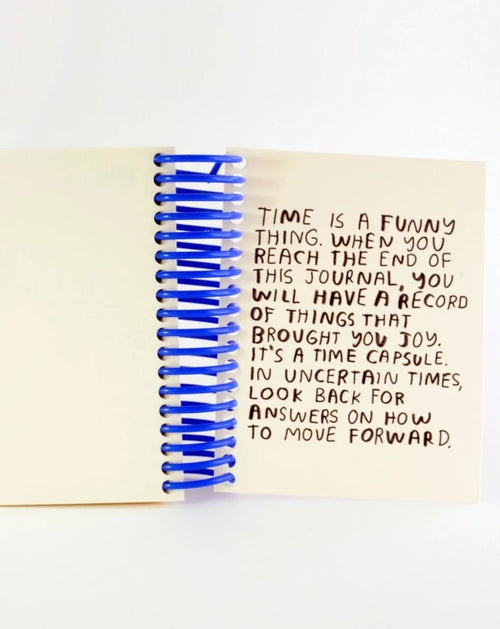 TIME IS A FUNNY
THING. WHEN YOU
REACH THE END OF
THIS JOURNAL, YOU
WILL HAVE A RECORD
OF THINGS THAT
BROUGHT YOU JOY.
IT'S A TIME CAPSULE.
IN UNCERTAIN TIMES,
LOOK BACK FOR
ANSWERS ON HOW
TO MOVE FORWARD.